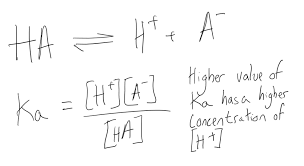 HA ⇌ H⁺ + A⁻
Ka = [H⁺][A⁻] / [HA]
Higher value of
Ka has a higher
Concentration of
[H⁺]